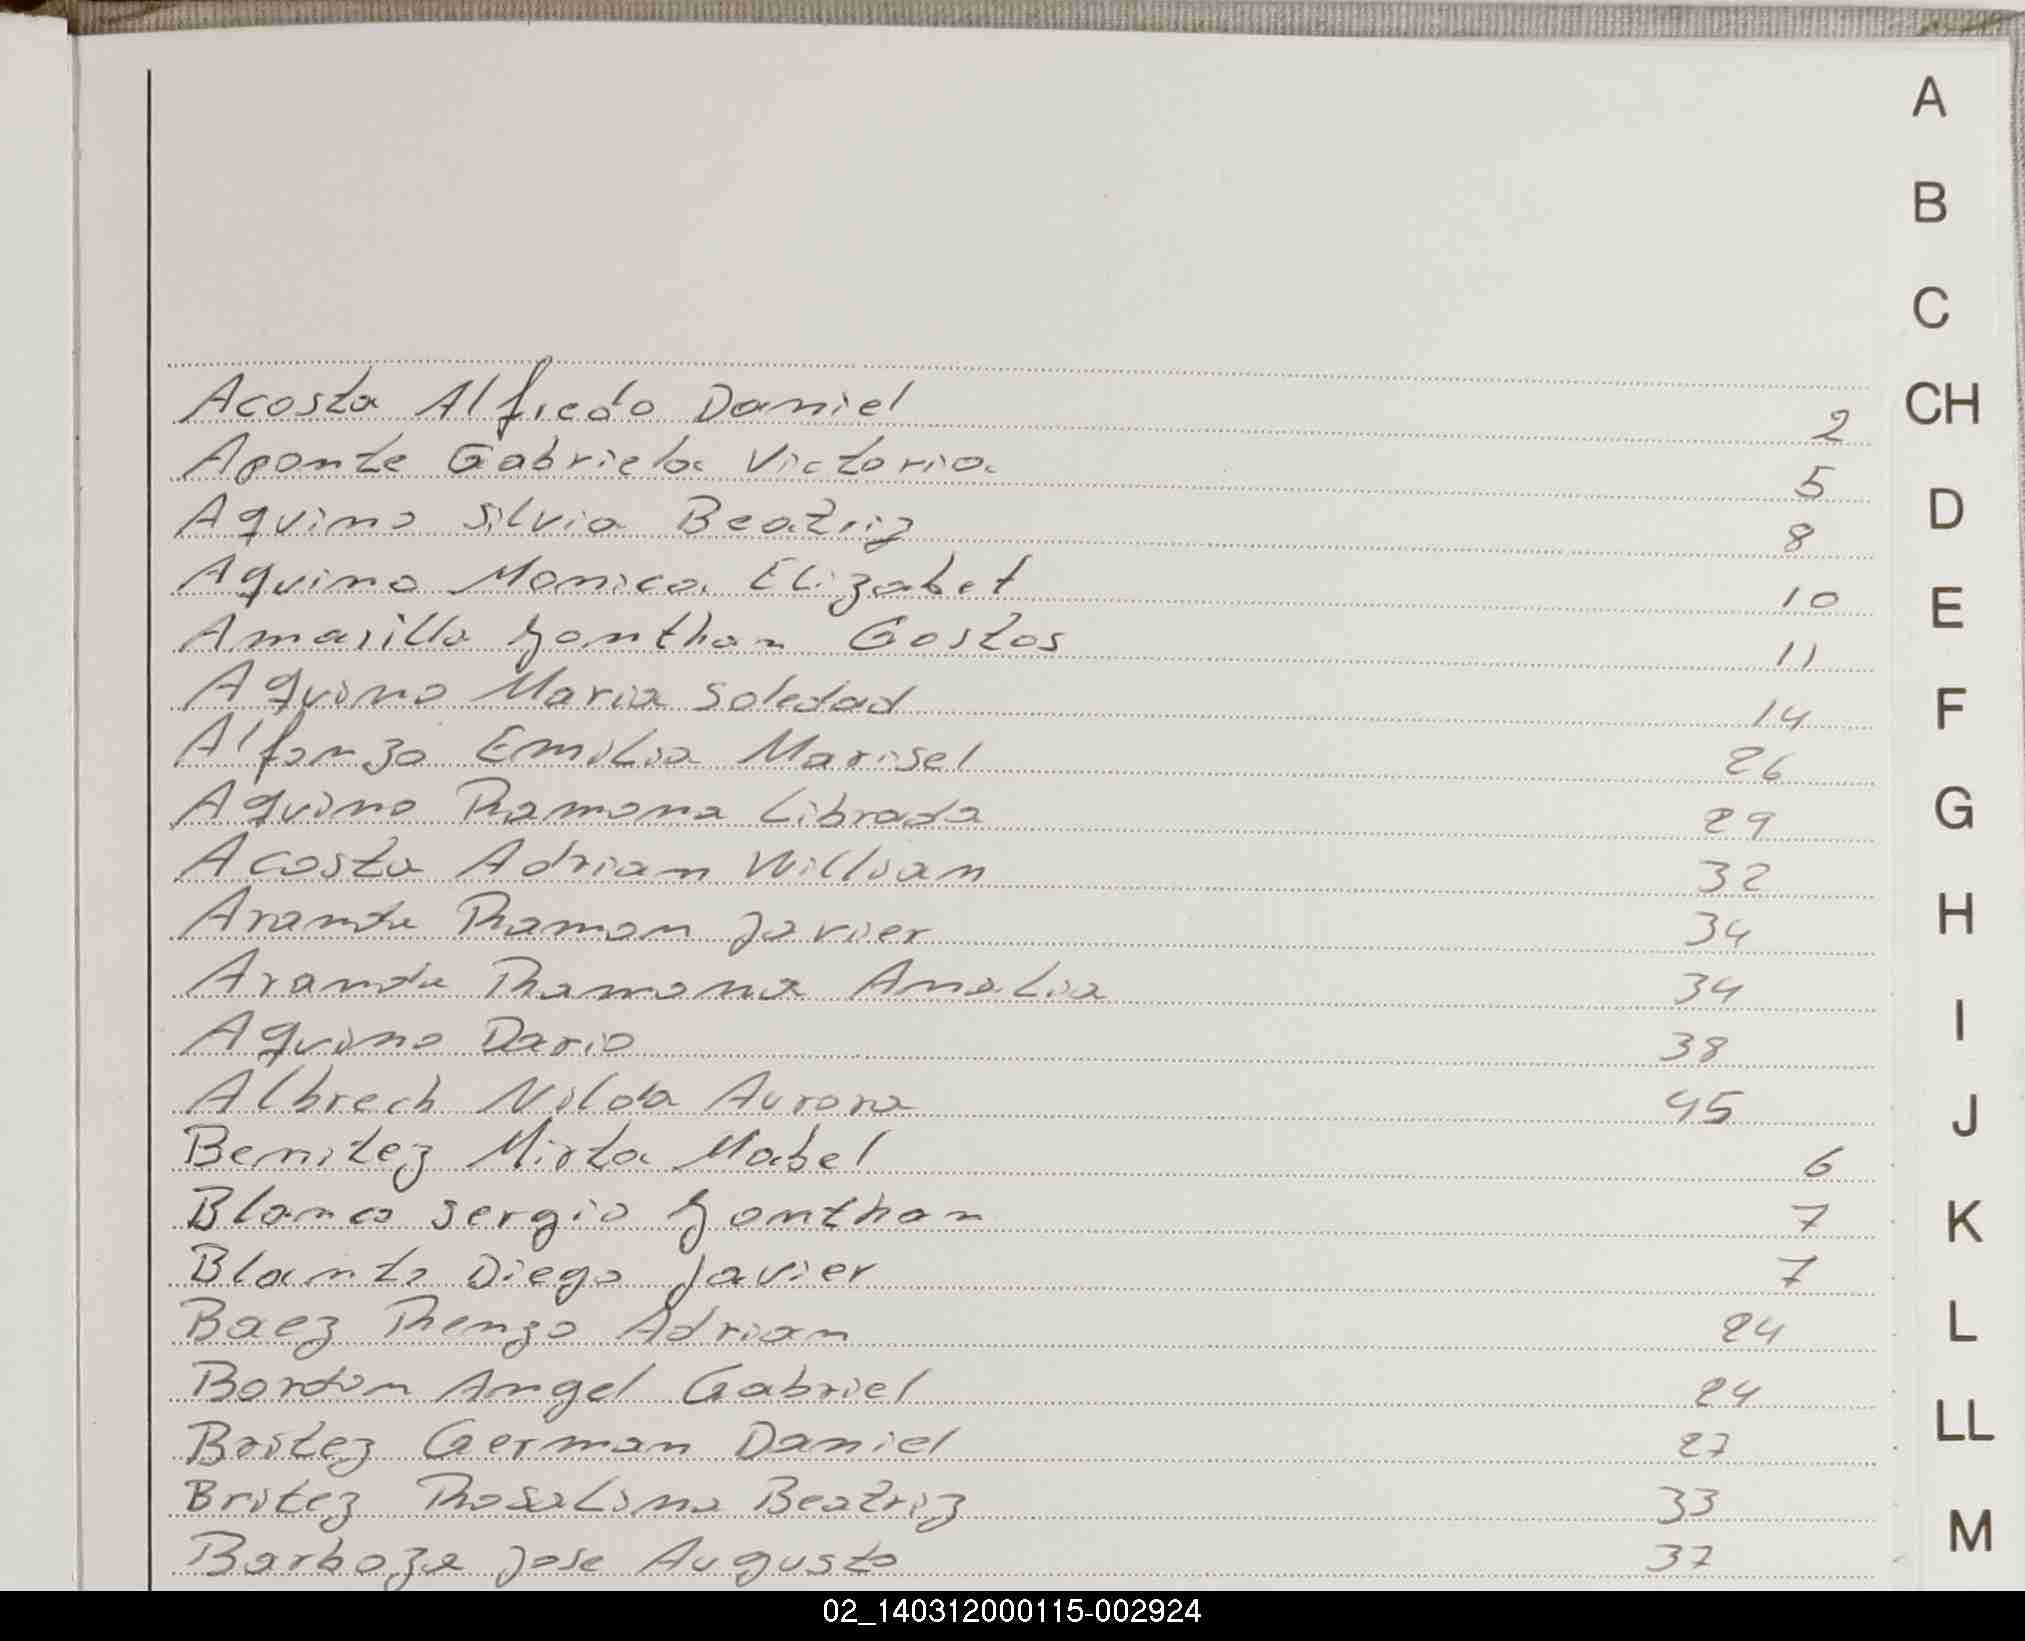 A
B
C
CH
D
E
F
G
H
I
J
K
L
LL
M
Acosta Alfredo Daniel 2
Aponte Gabriela Victoria 5
Aquino Silvia Beatriz 8
Aquino Monica Elizabet 10
Amarilla Gostos 11
Aquino Maria Soledad 14
Alfonzo Emilia Marisel 26
Aquino Ramona Librada 29
Acosta Adrian Willian 32
Aranda Ramon Javier 34
Aranda Ramona Analia 34
Aquino Dario 38
Albrech Nilda Aurora 45
Benitez Mirta Mabel 6
Blanco Sergio 7
Diego Javier 7
Baez Renzo Adrian 24
Bordon Angel Gabriel 24
Britez German Daniel 27
Britez Rosalina Beatriz 33
Barboza Jose Augusto 37
02_140312000115-002924